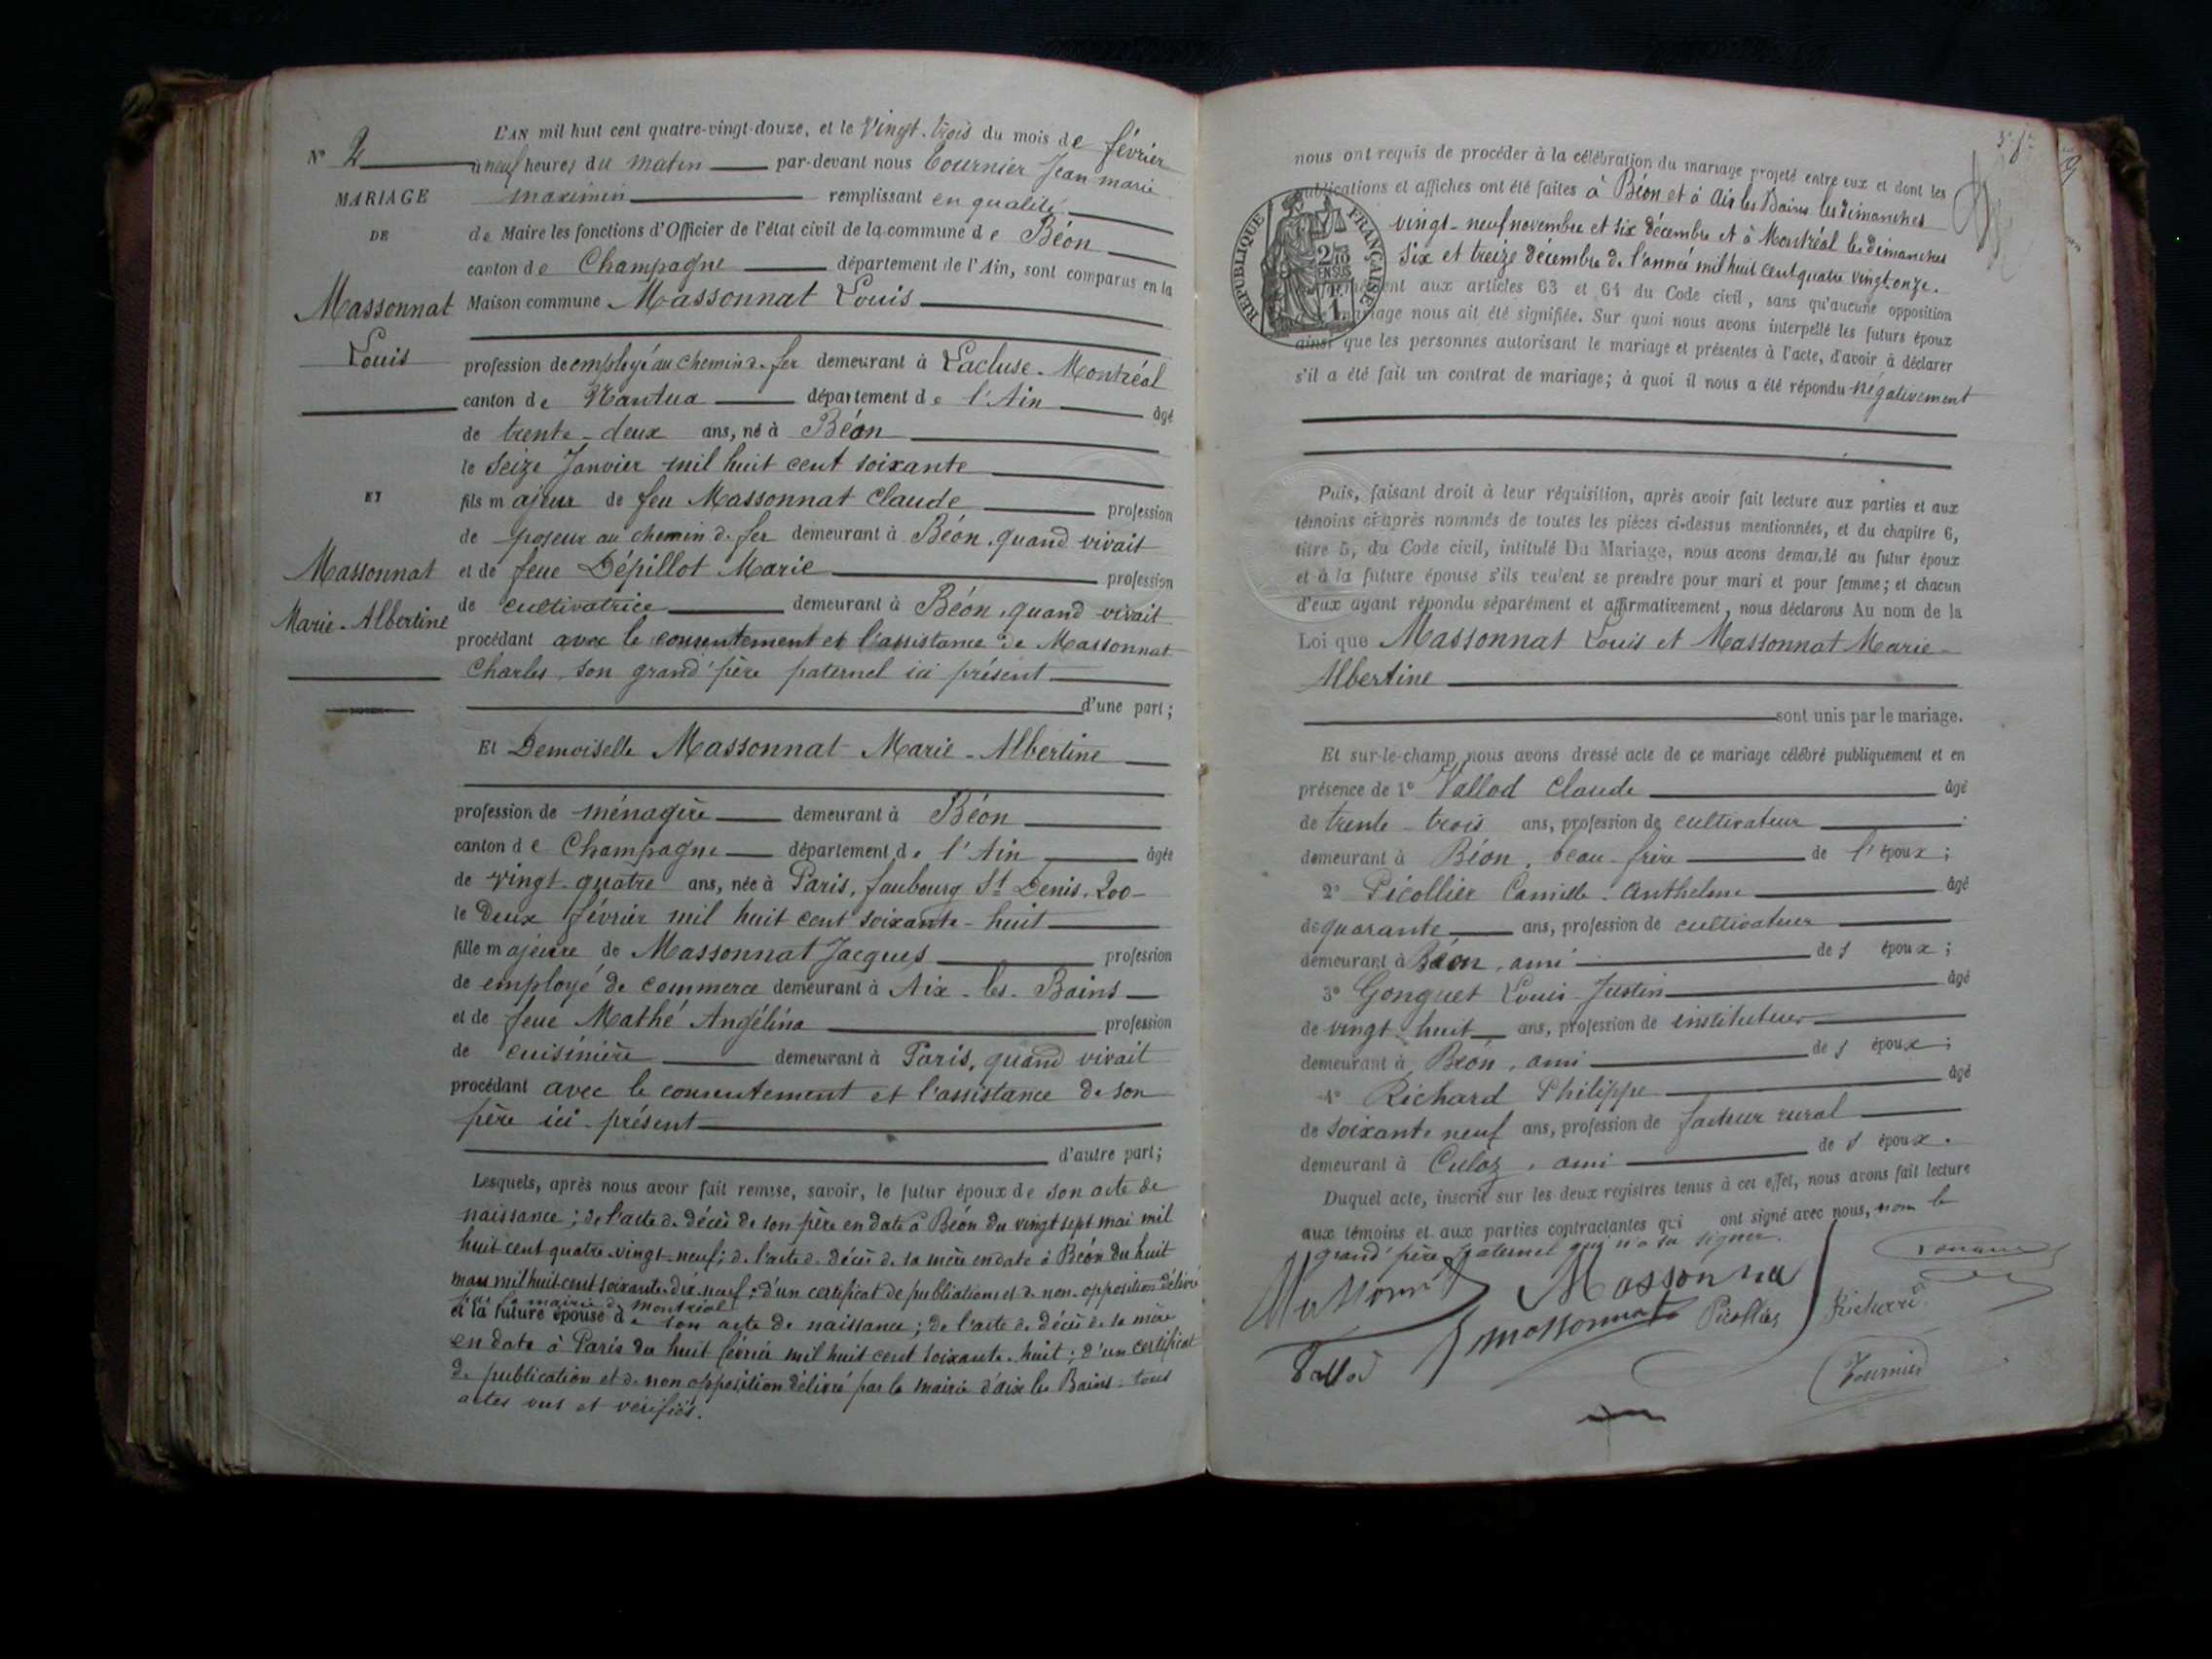 L'AN mil huit cent quatre-vingt-douze, et le Vingt-trois du mois de février
N° 2 à neuf heures du matin par-devant nous Tournier Jean marie
MARIAGE maximin remplissant en qualité
DE de Maire les fonctions d'Officier de l'état civil de la commune de Béon
canton de Champagne département de l'Ain, sont comparus en la
Massonnat Maison commune Massonnat Louis
Louis profession de employé au chemin de fer demeurant à Lacluse-Montréal
canton de Nantua département de l'Ain âgé
de trente-deux ans, né à Béon
le seize Janvier mil huit cent soixante
ET fils majeur de feu Massonnat Claude profession
de poseur au chemin de fer demeurant à Béon, quand vivait
Massonnat et de feue Dépillot Marie profession
Marie-Albertine de cultivatrice demeurant à Béon, quand vivait
procédant avec le consentement et l'assistance de Massonnat
Charles, son grand'père paternel ici présent
d'une part;
Et Demoiselle Massonnat Marie-Albertine
profession de ménagère demeurant à Béon
canton de Champagne département de l'Ain âgée
de vingt-quatre ans, née à Paris, faubourg St Denis, 200
le Deux février mil huit cent soixante-huit
fille majeure de Massonnat Jacques profession
de employé de commerce demeurant à Aix-les-Bains
et de feue Mathé Angélina profession
de cuisinière demeurant à Paris, quand vivait
procédant avec le consentement et l'assistance de son
père ici présent
d'autre part;
Lesquels, après nous avoir fait remise, savoir, le futur époux de son acte de
naissance; de l'acte de décès de son père en date à Béon du vingt sept mai mil
huit cent quatre-vingt-neuf; de l'acte de décès de sa mère en date à Béon du huit
mars mil huit cent soixante-dix-neuf; d'un certificat de publications et de non-opposition délivré
par la mairie de Montréal
et la future épouse de son acte de naissance; de l'acte de décès de sa mère
en date à Paris du huit février mil huit cent soixante-huit; d'un certificat
de publication et de non opposition délivré par la mairie d'aix les Bains. tous
actes vus et vérifiés.
nous ont requis de procéder à la célébration du mariage projeté entre eux et dont les
publications et affiches ont été faites à Béon et à Aix les Bains les dimanches
vingt-neuf novembre et six décembre et à Montréal les dimanches
six et treize décembre de l'année mil huit cent quatre vingt-onze.
aux articles 63 et 64 du Code civil, sans qu'aucune opposition
mariage nous ait été signifiée. Sur quoi nous avons interpellé les futurs époux
ainsi que les personnes autorisant le mariage et présentes à l'acte, d'avoir à déclarer
s'il a été fait un contrat de mariage; à quoi il nous a été répondu négativement
RÉPUBLIQUE FRANÇAISE
2/10
EN SUS
1F
Puis, faisant droit à leur réquisition, après avoir fait lecture aux parties et aux
témoins ci-après nommés de toutes les pièces ci-dessus mentionnées, et du chapitre 6,
titre 5, du Code civil, intitulé Du Mariage, nous avons demandé au futur époux
et à la future épouse s'ils veulent se prendre pour mari et pour femme; et chacun
d'eux ayant répondu séparément et affirmativement, nous déclarons Au nom de la
Loi que Massonnat Louis et Massonnat Marie-
Albertine
sont unis par le mariage.
Et sur-le-champ nous avons dressé acte de ce mariage célébré publiquement et en
présence de 1° Vallod Claude âgé
de trente-trois ans, profession de cultivateur
demeurant à Béon, beau-frère de l'époux;
2° Picollier Camille-Anthelme âgé
de quarante ans, profession de cultivateur
demeurant à Béon, ami des époux;
3° Gonguet Louis-Justin âgé
de vingt-huit ans, profession de instituteur
demeurant à Béon, ami des époux;
4° Richard Philippe âgé
de soixante neuf ans, profession de facteur rural
demeurant à Culoz, ami des époux.
Duquel acte, inscrit sur les deux registres tenus à cet effet, nous avons fait lecture
aux témoins et aux parties contractantes qui ont signé avec nous, non le
grand'père paternel qui n'a su signer.
Massonna
Massonnat Picollier Richard
Vallod Tournier